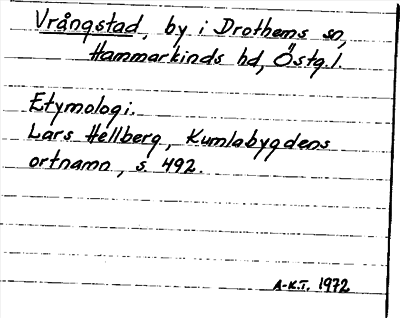 Vrångstad, by i Drothems sn,
Hammarkinds hd, Östg.l.
Etymologi.
Lars Hellberg, Kumlabygdens
ortnamn, s. 492.
A-K.T. 1972